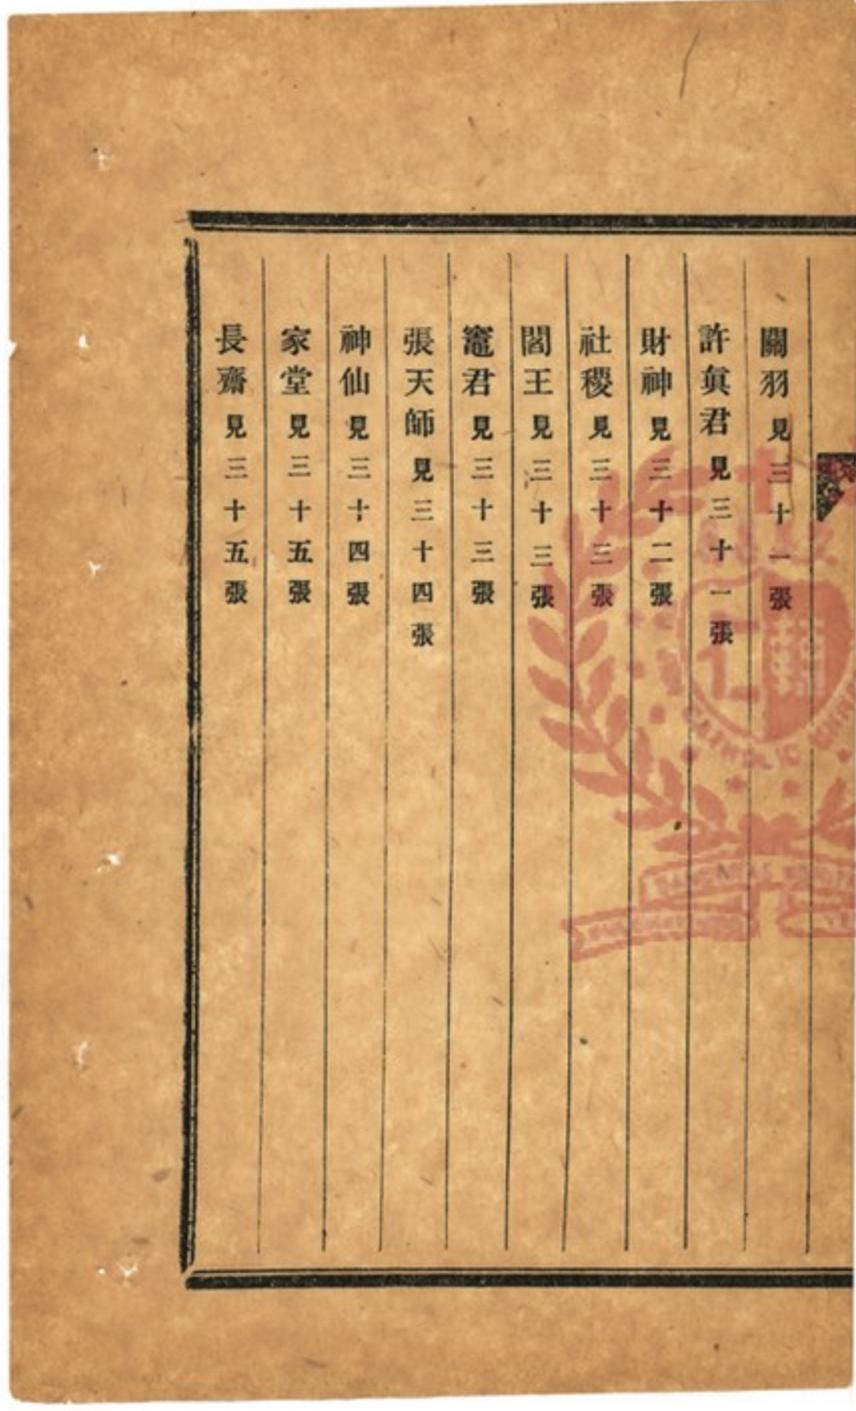 關羽見三十一張
許眞君見三十一張
財神見三十二張
社稷見三十三張
閻王見三十三張
竈君見三十三張
張天師見三十四張
神仙見三十四張
家堂見三十五張
長齋見三十五張
仁
CATHOLIC